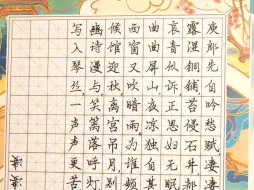 庾郎先自吟愁赋,凄凄
露湿铜铺,苔侵石井,都
哀音似诉,正思妇无眠,
曲曲屏山,夜凉独自甚
西窗又吹暗雨,为谁
候馆迎秋,离宫吊月,别
豳诗漫与,笑篱落呼灯,
写入琴丝,一声声更苦